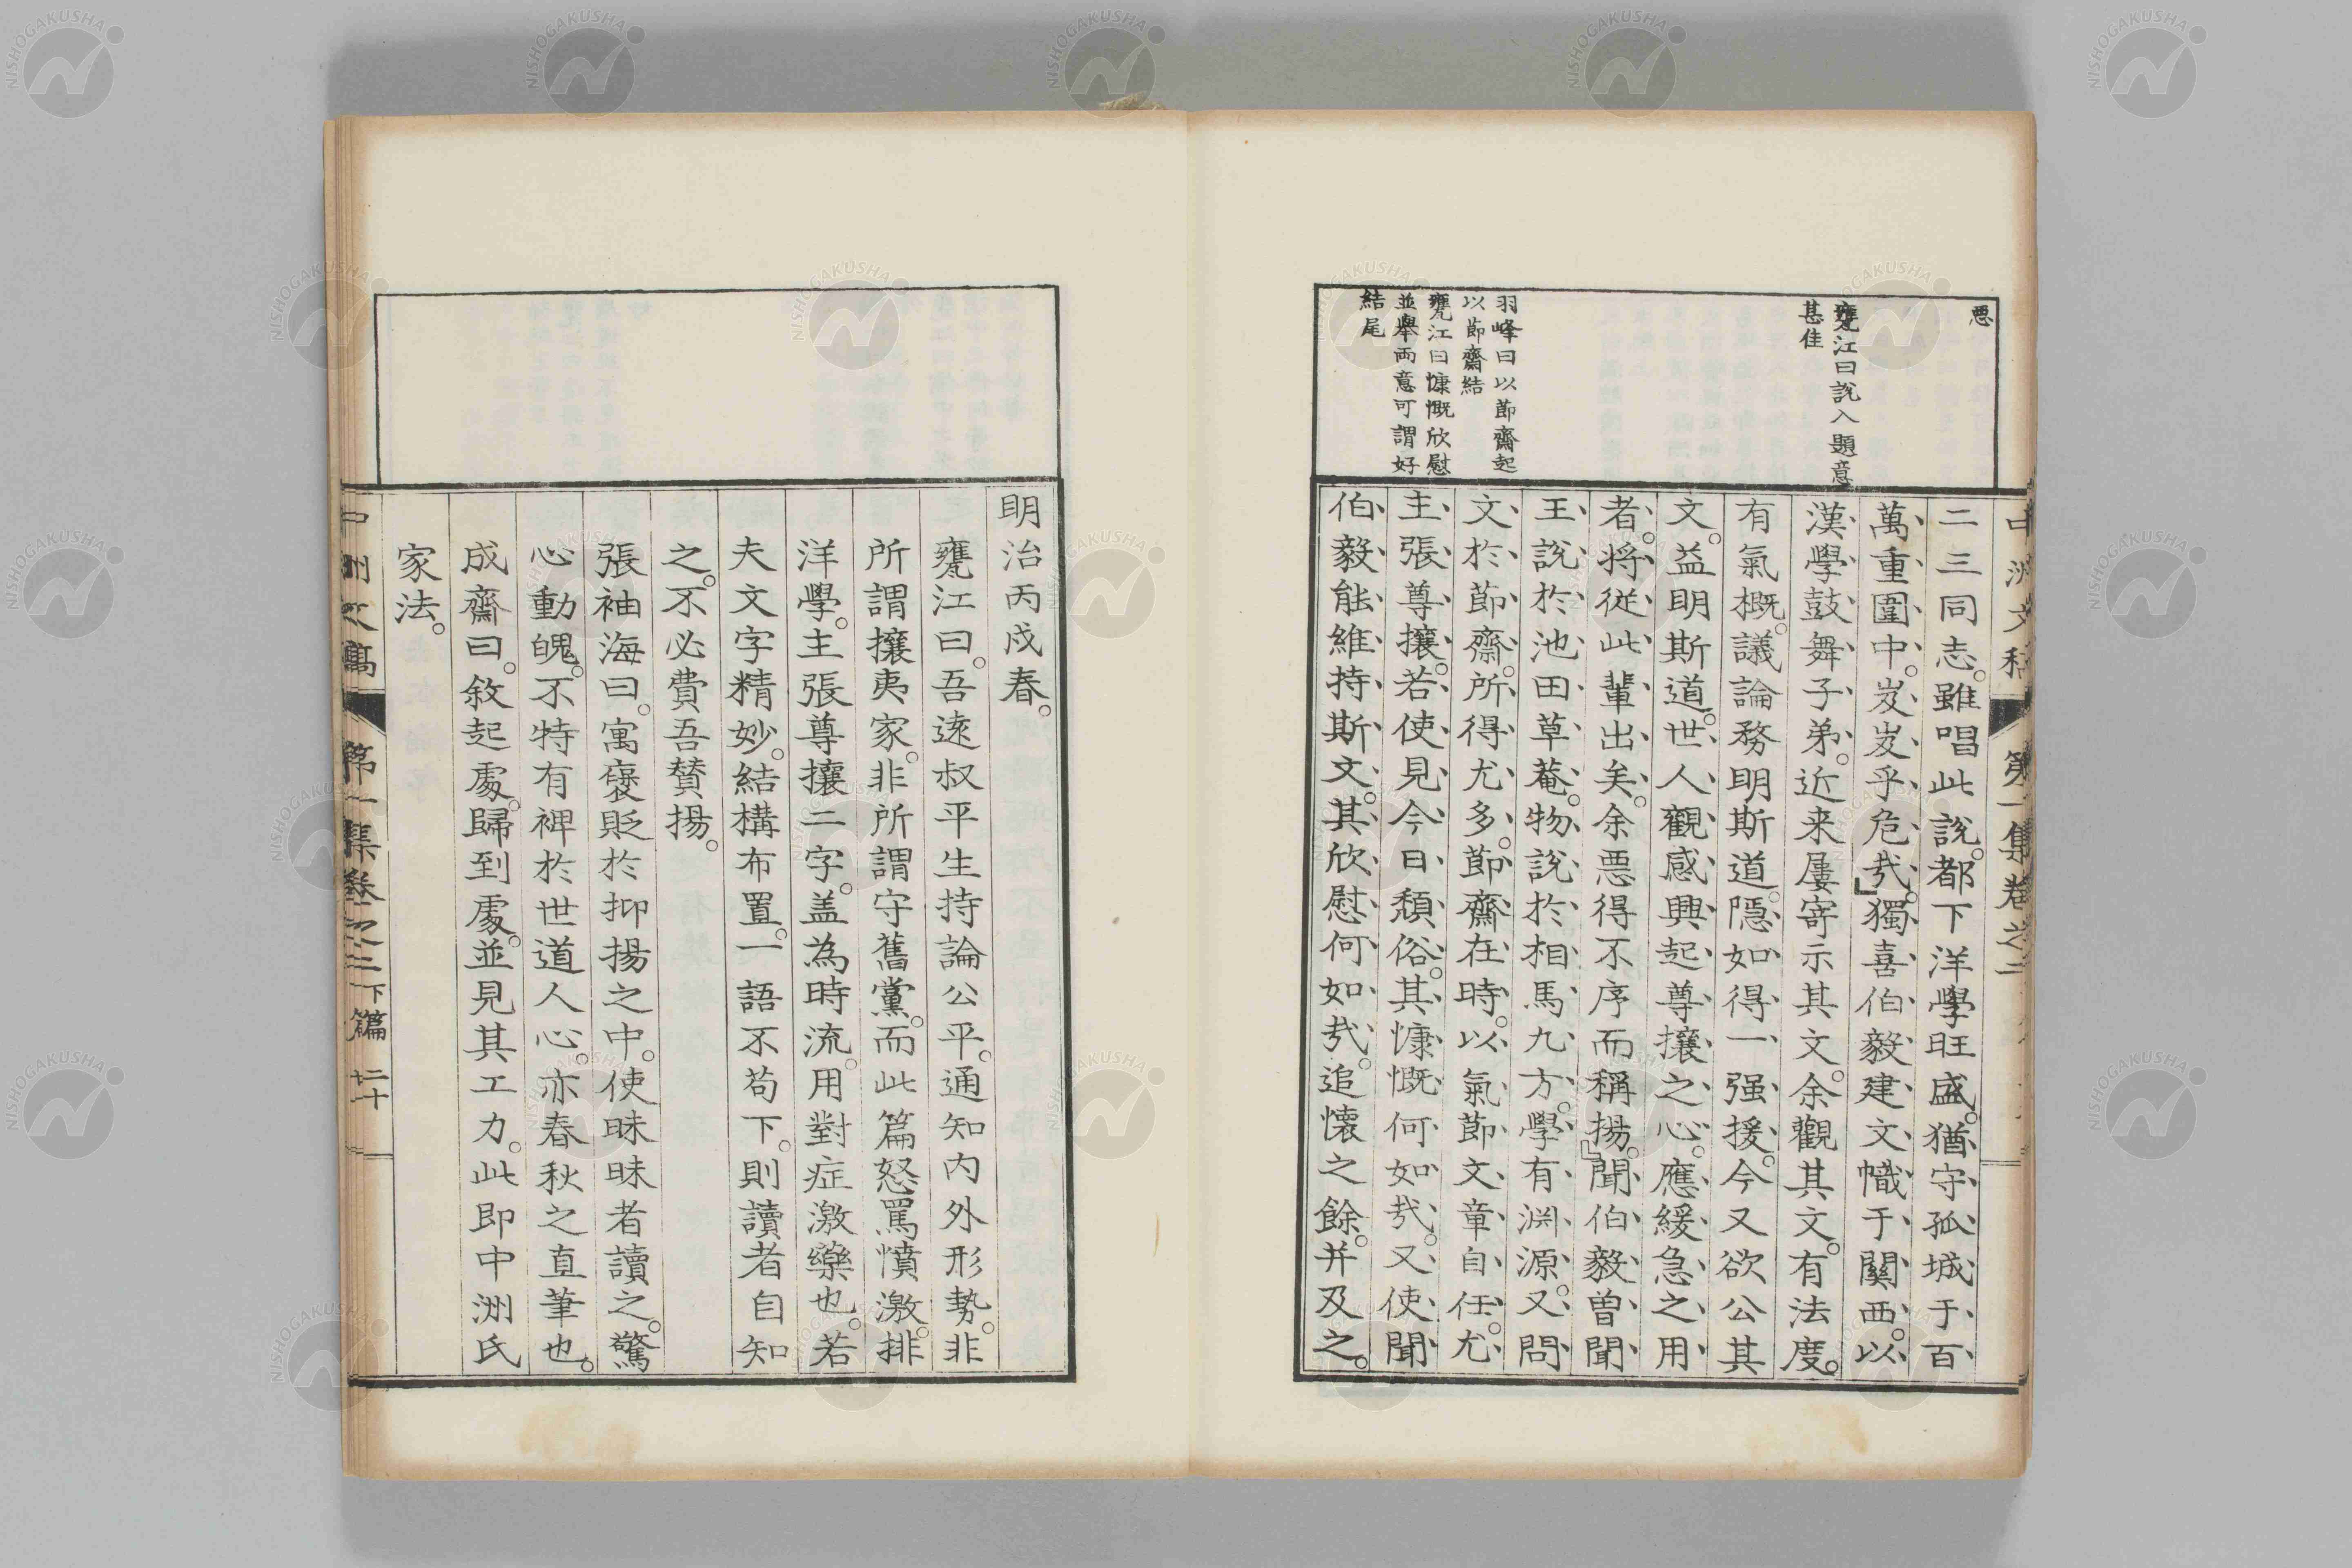 悪
甕江曰説入題意
甚佳
羽峰曰以節齋起
以節齋結
甕江曰慷慨欣慰
並擧兩意可謂好
結尾
中洲文稿 第一集卷之二
二三同志。雖唱此説。都下洋學旺盛。猶守孤城于百
萬重圍中。岌岌乎危哉。」獨喜伯毅建文幟于關西。以
漢學鼓舞子弟。近来屢寄示其文。余觀其文。有法度。
有氣概。議論務明斯道。隠如得一强援。今又欲公其
文。益明斯道。世人觀感興起尊攘之心。應緩急之用
者。將從此輩出矣。余悪得不序而稱揚。」聞伯毅曽聞
王説於池田草菴。物説於相馬九方。學有淵源。又問
文於節齋。所得尤多。節齋在時。以氣節文章自任。尤
主張尊攘。若使見今日頽俗。其慷慨何如哉。又使聞
伯毅能維持斯文。其欣慰何如哉。追懐之餘。并及之。
明治丙戌春。
甕江曰。吾遠叔平生持論公平。通知内外形勢。非
所謂攘夷家。非所謂守舊黨。而此篇怒罵憤激。排
洋學。主張尊攘二字。盖為時流。用對症激藥也。若
夫文字精妙。結構布置。一語不苟下。則讀者自知
之。不必費吾賛揚。
張袖海曰。寓褒貶於抑揚之中。使昧昧者讀之。驚
心動魄。不特有裨於世道人心。亦春秋之直筆也。
成齋曰。敘起處。歸到處。並見其工力。此即中洲氏
家法。
中洲文稿 第一集卷之二下篇 二十